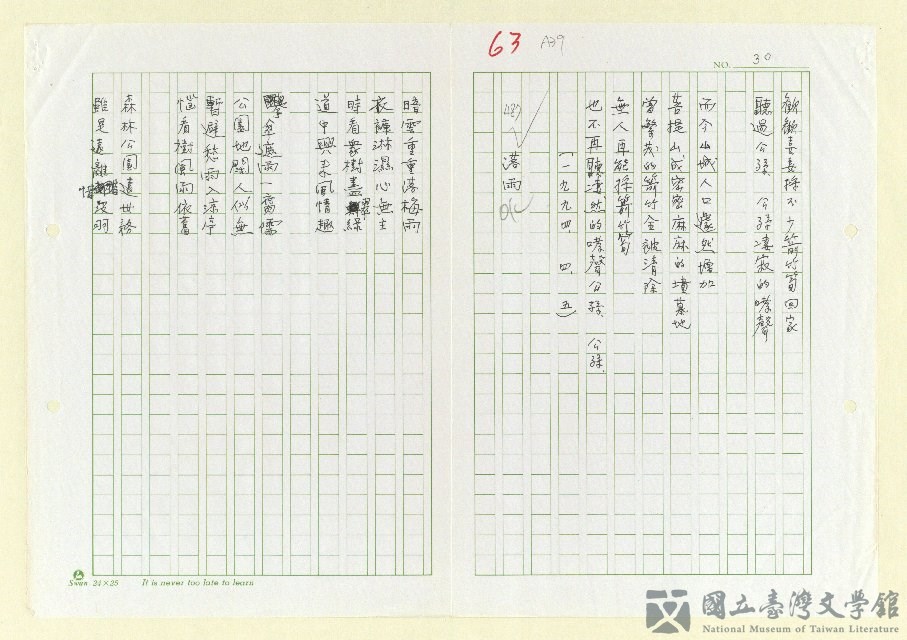 63
A39
NO. 30
歡歡喜喜採不少箭竹筍回家
聽過公孫 公孫淒寂的嘹聲
而今山城人口遽然增加
菩提山成密密麻麻的墳墓地
曾繁茂的箭竹全被清除
無人再能採箭竹筍
也不再聽淒然的嘹聲公孫 公孫
(一九九四、四、五)
落雨
暗雲重重落梅雨
衣褲淋濕心無主
時看眾樹盡翠綠
道中興未風情趣
公園地闊人似無
暫避愁雨入涼亭
惱看樹風雨依舊
森林公園遠世務
雖是遠離
Swan 24×25 It is never too late to learn
國立臺灣文學館
National Museum of Taiwan Literature